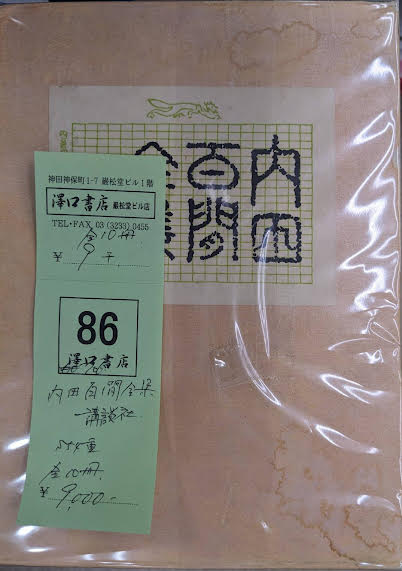 内田
百閒
全集
神田神保町1-7 巌松堂ビル1階
澤口書店 巌松堂ビル店
TEL・FAX 03 (3233) 0455
全10冊
¥ 9千
86
澤口書店
内田百閒全集
講談社
全10冊
¥ 9,000-